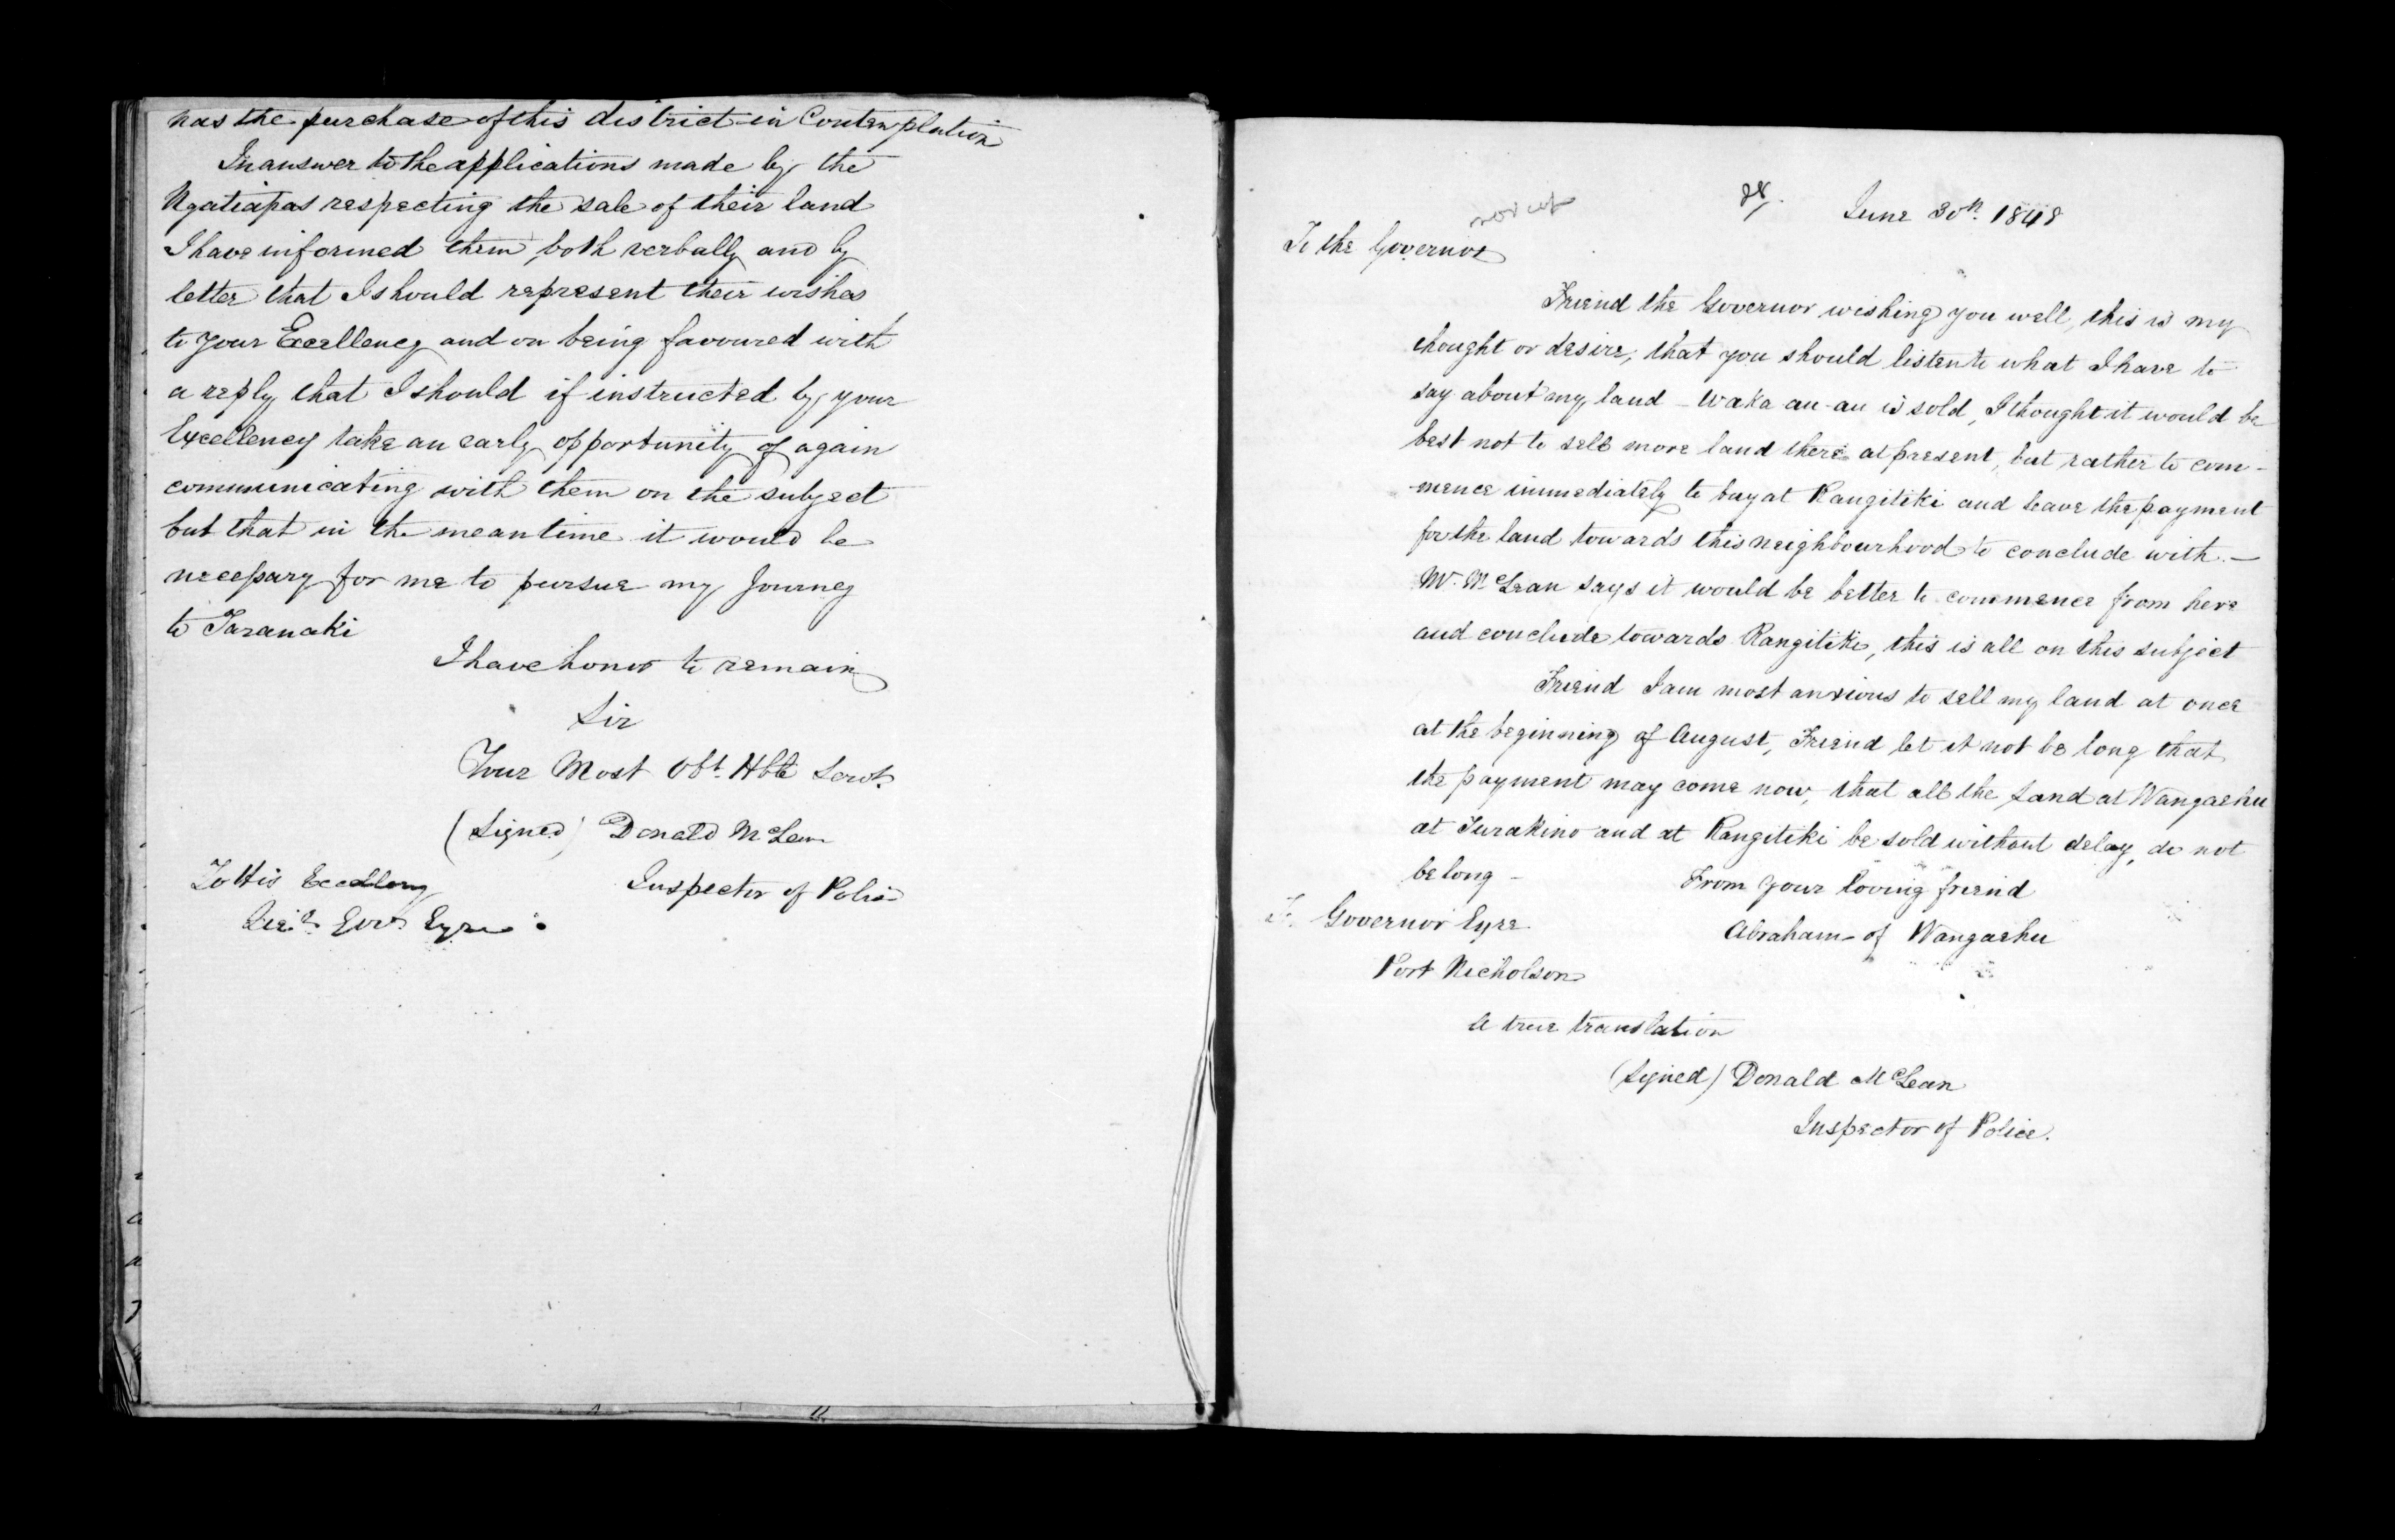 has the purchase of this district in Contemplation
In answer to the applications made by the
Ngatiapas respecting the sale of their land
I have informed them, both verbally and by
letter that I should represent their wishes
to your Excellency and on being favoured with
a reply that I should if instructed by your
Excellency take an early opportunity of again
communicating with them on the subject
but that in the meantime it would be
necessary for me to pursue my Journey
to Taranaki
I have honor to remain
Sir
Your Most Obt. Hble Servt.
(Signed) Donald McLean
Inspector of Police
To His Excellency
Lieut Govr Eyre
28/. June 30th. 1848
To the Governor
Friend the Governor wishing you well, this is my
thought or desire, that you should listen to what I have to
say about my land - Waka-au-au is sold, I thought it would be
best not to sell more land there at present, but rather to com-
mence immediately to buy at Rangitiki and leave the payment
for the land towards this neighbourhood to conclude with. -
Mr. McLean says it would be better to commence from here
and conclude towards Rangitiki, this is all on this subject
Friend I am most anxious to sell my land at once
at the beginning of August, Friend let it not be long that
the payment may come now, that all the Land at Wangaehu
at Turakino and at Rangitiki be sold without delay, do not
be long -
From your loving friend
Abraham of Wangaehu
To Governor Eyre
Port Nicholson
A true translation
(Signed) Donald McLean
Inspector of Police.